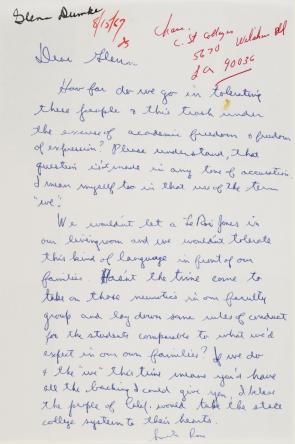 Glenn Dumke
8/15/67
Chan.
C. St Colleges
5670 Wilshire Bld
LA 90036
Dear Glenn
How far do we go in tolerating
these people & this trash under
the excuse of academic freedom & freedom
of expression? Please understand, that
question isn't made in any tone of accusation.
I mean myself too in that use of the term
"we".
We wouldn't let a LeRoi Jones in
our living room and we wouldn't tolerate
this kind of language in front of our
families. Hasn't the time come to
take on those neurotics in our faculty
group and lay down some rules of conduct
for the students comparable to what we'd
expect in our own families? If we do
& the "we" this time means you'd have
all the backing I could give you, I believe
the people of Calif. would take the state
college system to their hearts.
Ron